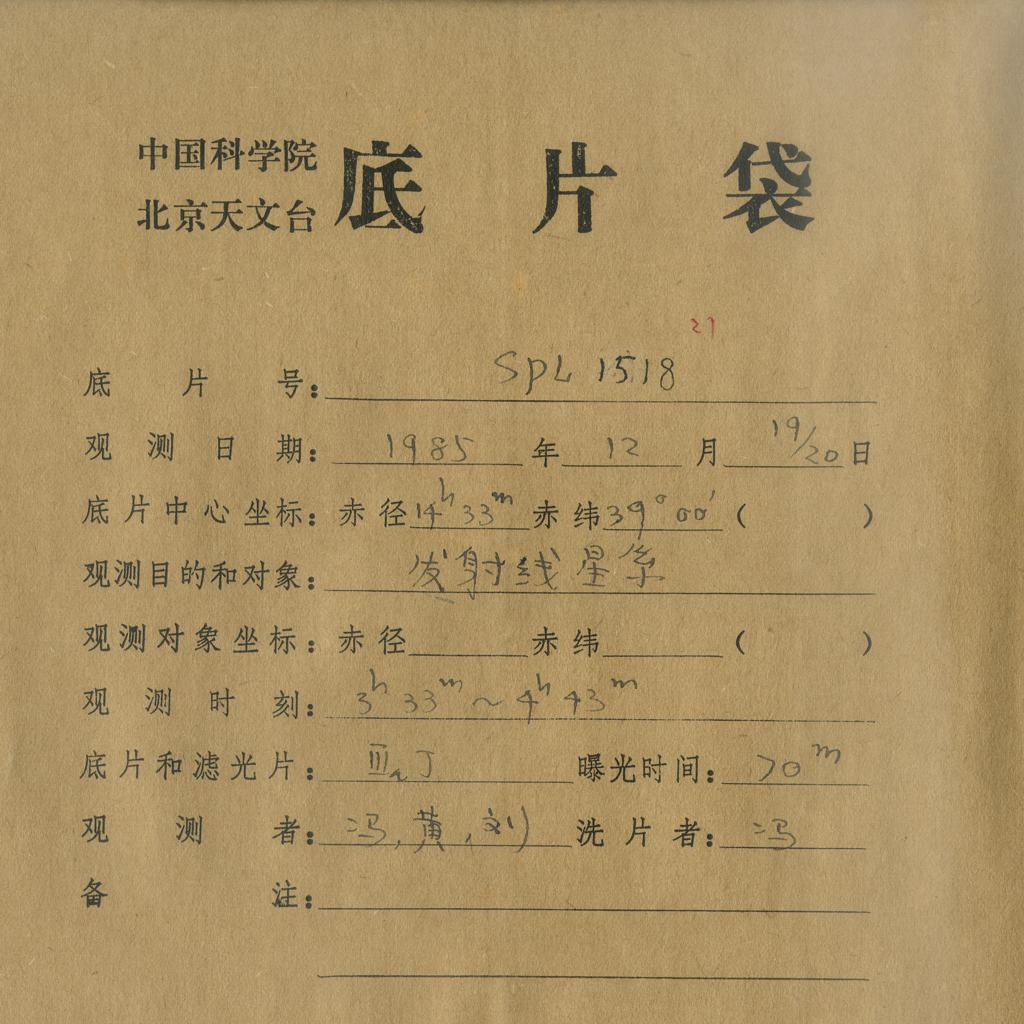 中国科学院
北京天文台
底片袋
21
底片号：SpL 1518
观测日期：1985年12月19/20日
底片中心坐标：赤径14ʰ33ᵐ赤纬39°00′（ ）
观测目的和对象：发射线星系
观测对象坐标：赤径 赤纬 （ ）
观测时刻：3ʰ33ᵐ～4ʰ43ᵐ
底片和滤光片：ⅢaJ 曝光时间：70ᵐ
观测者：冯，黄，刘 洗片者：冯
备注：